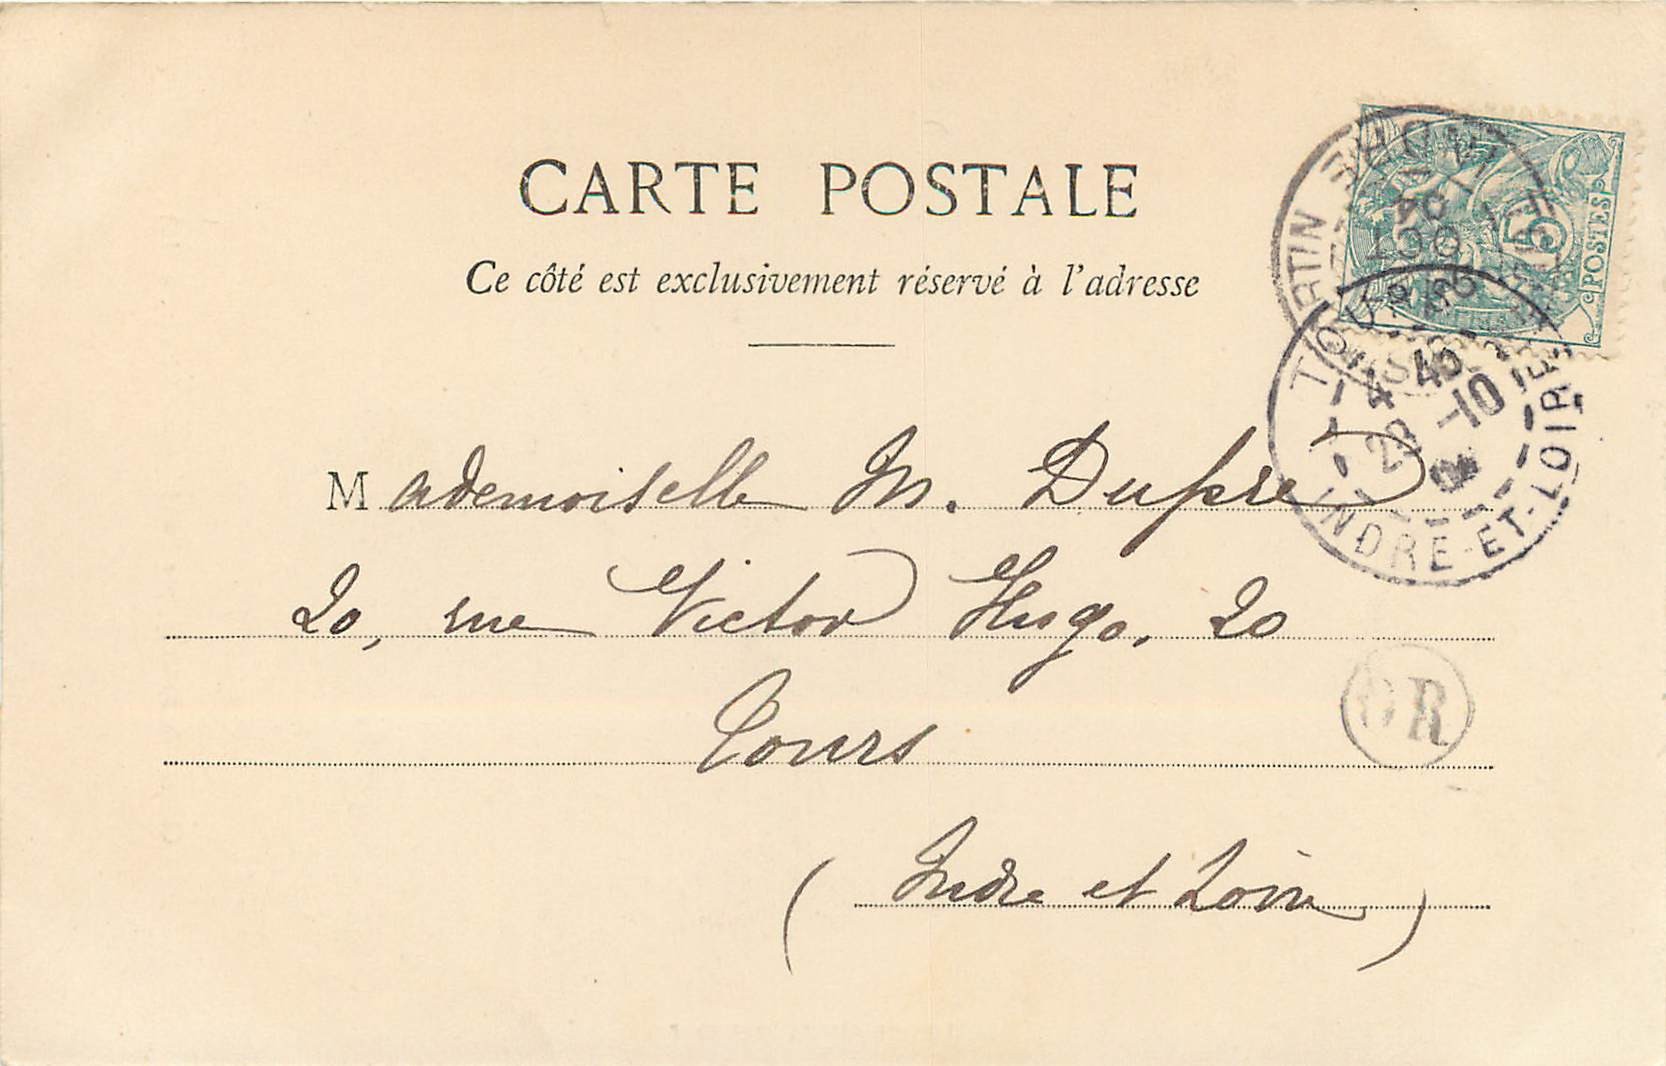 CARTE POSTALE
Ce côté est exclusivement réservé à l'adresse
5
POSTES
RTIN
OCT
04
TOURS
4 45
-10
INDRE-ET-LOIRE
Mademoiselle M. Dupré
20, rue Victor Hugo, 20
OR
Tours
(Indre et Loire)